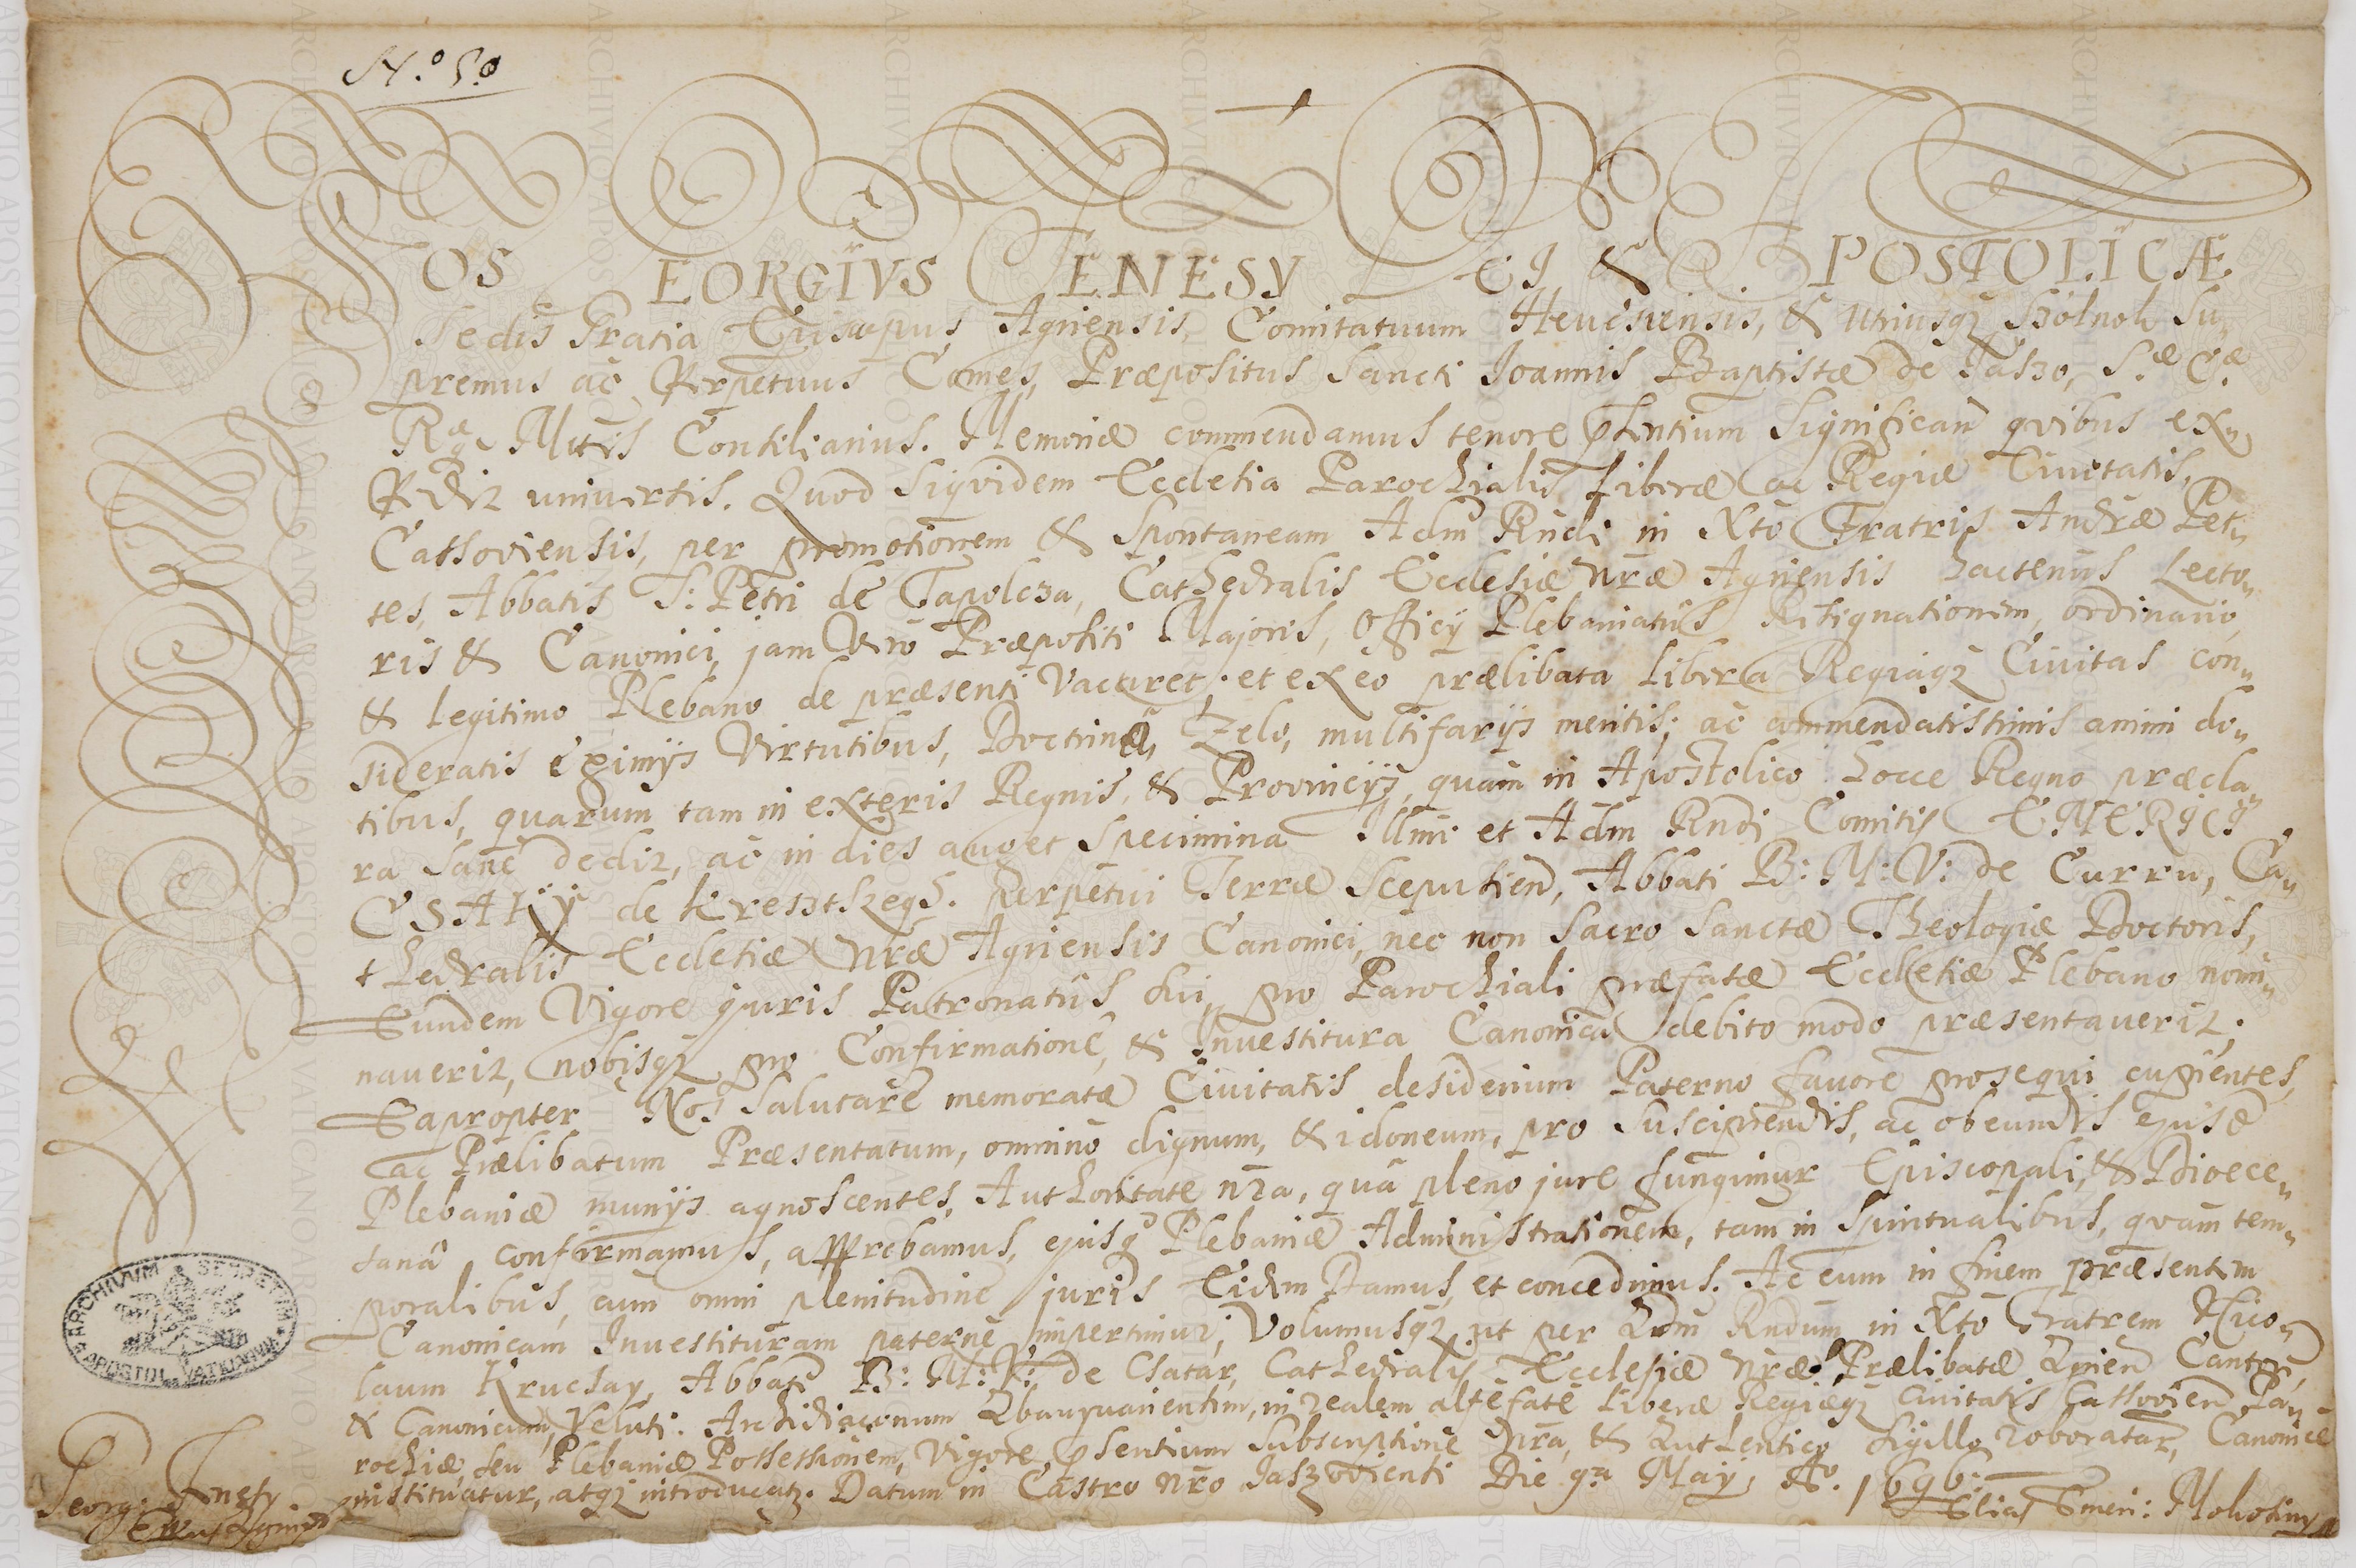 N.º 5.º
NOS GEORGIVS FENESY DEI & APOSTOLICÆ
Sedis Gratia Episcopus Agriensis, Comitatuum Hevesiensis, & utriusq; Szolnok Su„
premus ac Perpetuus Comes, Præpositus Sancti Joannis Baptistæ de Jaszo, S.æ C.æ
Rgæ Mttis Consiliarius. Memoriæ commendamus tenore pñtium Significañ qvibus ex„
Pediz universis. Quod Siqvidem Ecclesia Parochialis Liberæ ac Regiæ Civitatis,
Cassoviensis, per promotionem & Spontaneam Adm Rndi in Xto Fratris Andræ Pet„
tes, Abbatis S: Petri de Tapolcza, Cathedralis Ecclesiæ Nræ Agriensis hactenus Lecto„
ris & Canonici, jam Vero Præpositi Majoris, Officij Plebaniatûs Resignationem, ordinario,
& legitimo Plebano de præsenti Vacaret; et ex eo prælibata Libera Regiaq; Civitas con„
sideratis eximijs Virtutibus, Doctrinâ, Zelo, multifarijs meritis; ac commendatissimis animi do„
tibus, quarum tam in exteris Regnis, & Provincijs, quàm in Apostolico hocce Regno præcla„
ra sane dediz, ac in dies auget Specimina Illmi et Adm Rndi Comitis EMERICI
CSAKY de Kereszthzegh. perpetui Terræ Scepusien, Abbati B: M: V: de Curru, Ca„
thedralis Ecclesiæ Nræ Agriensis Canonici, nec non Sacro Sanctæ Theologiæ Doctoris,
Eundem Vigore juris Patronatûs sui, pro Parochiali præfatæ Ecclesiæ Plebano nomi„
naveriz, nobisq; pro Confirmatione, & Investitura Canonica debito modo præsentaveriz;
Eapropter Nos Salutare memoratæ Civitatis desiderium Paterno favore prosequi cupientes,
ac Prælibatum Præsentatum, omnino dignum, & idoneum, pro Suscipiendis, ac obeundis ejusd
Plebaniæ munijs agnoscentes, Authoritate nra, quâ pleno jure fungimur Episcopali, & Dioece„
sanâ confirmamus, approbamus, ejusq; Plebaniæ Administrationem, tam in Spiritualibus, qvam tem„
poralibus, cum omni plenitudine juris Eidm Damus, et concedimus. Ac eum in finem præsentem
Canonicam Investituram paterne impertimur; Volumusq; ut per Adm Rndum in Xto Fratrem Nico„
laum Krucsay, Abbate B: M: V: de Csatar, Cathedralis Ecclesiæ Nræ Prælibatæ Agrien Cantor,
& Canonicum, Veluti Archidiaconum Abaujvariensem, in realem altefatæ Liberæ Regiæq; Civitatis Cassovien Pa„
rochiæ, seu Plebaniæ Possessionem, Vigore psentium Subscriptione Nra, & Authentico Sigillo roboratar, Canonice
instituatur, atq; introducatr. Datum in Castro nro Jaszoviensi Die 9.a May, Ao. 1696.
Georg: Fenesy
Eppus Agrien
Elias Emeri: Mohoriny
ARCHIVVM SECRETVM APOSTOL. VATICANVM